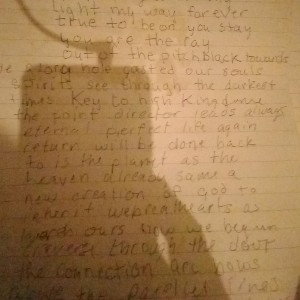 Light my way for ever
true to be on you stay
you are the ray
out of the pitchblack towards
glory not gasted our souls
spirits see through the darkest
times key to high kingdome
the point director leads always
eternal perfect life again
return will be done back
to is the planet as the
heaven already same a
new creation of god to
hearts as
ours we begun
through the dout
the connection are nows
the parallel lines